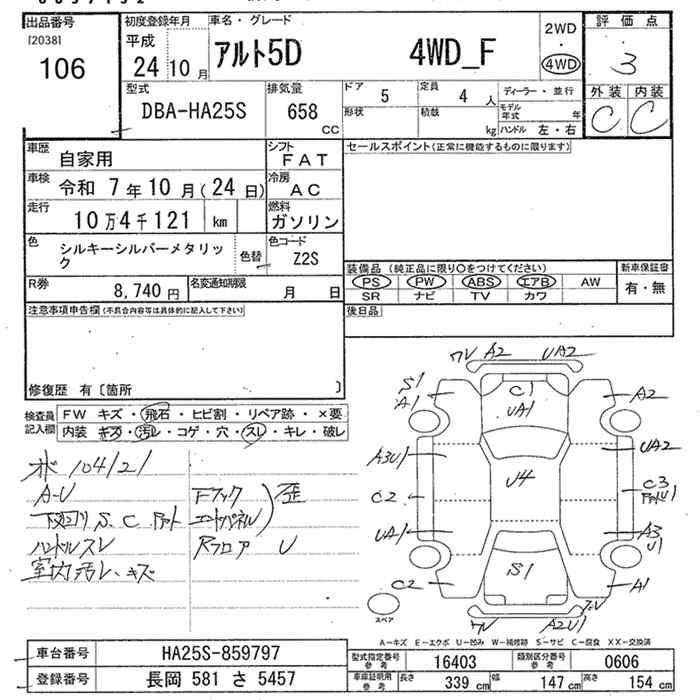 出品番号
[2038]
106
初度登録年月
平成
24 10 月
車名・グレード
アルト5D 4WD_F
2WD
・
4WD
評価点
3
外装 内装
C C
型式
DBA-HA25S
排気量
658
CC
ドア 5
定員 4 人
形状
積載 kg
ディーラー・並行
モデル年式 年
ハンドル 左・右
車歴 自家用
シフト FAT
車検 令和 7年 10月 (24日)
冷房 AC
走行 10万4千121 km
燃料 ガソリン
色 シルキーシルバーメタリック
色替
色コード Z2S
R券 8,740 円
名変通知期限 月 日
セールスポイント(正常に機能するものに限ります)
装備品 (純正品に限り○をつけてください)
新車保証書
PS PW ABS エアB AW
有・無
SR ナビ TV カワ
後日品
注意事項申告欄(不具合内容等は具体的に記入して下さい)
修復歴 有〔箇所 〕
検査員記入欄
FW キズ・飛石・ヒビ割・リペア跡・×要
内装 キズ・汚レ・コゲ・穴・スレ・キレ・破レ
104121
A-U
下廻り S、C
ハンドルスレ
室内汚レ、キズ
Fフック
歪
Rフロア U
A2 UA2
S1
A1
C1
UA1
A2
A3U1
UA2
U4
C2
C3
UA1
A3
U1
S1
C2
A1
A2U1
スペア
A−キズ E−エクボ U−凹み W−補修跡 S−サビ C−腐食 XX−交換済
車台番号 HA25S-859797
登録番号 長岡 581 さ 5457
型式指定番号 参考 16403
類別区分番号 参考 0606
車庫証明用 参考
長さ 339 cm
幅 147 cm
高さ 154 cm